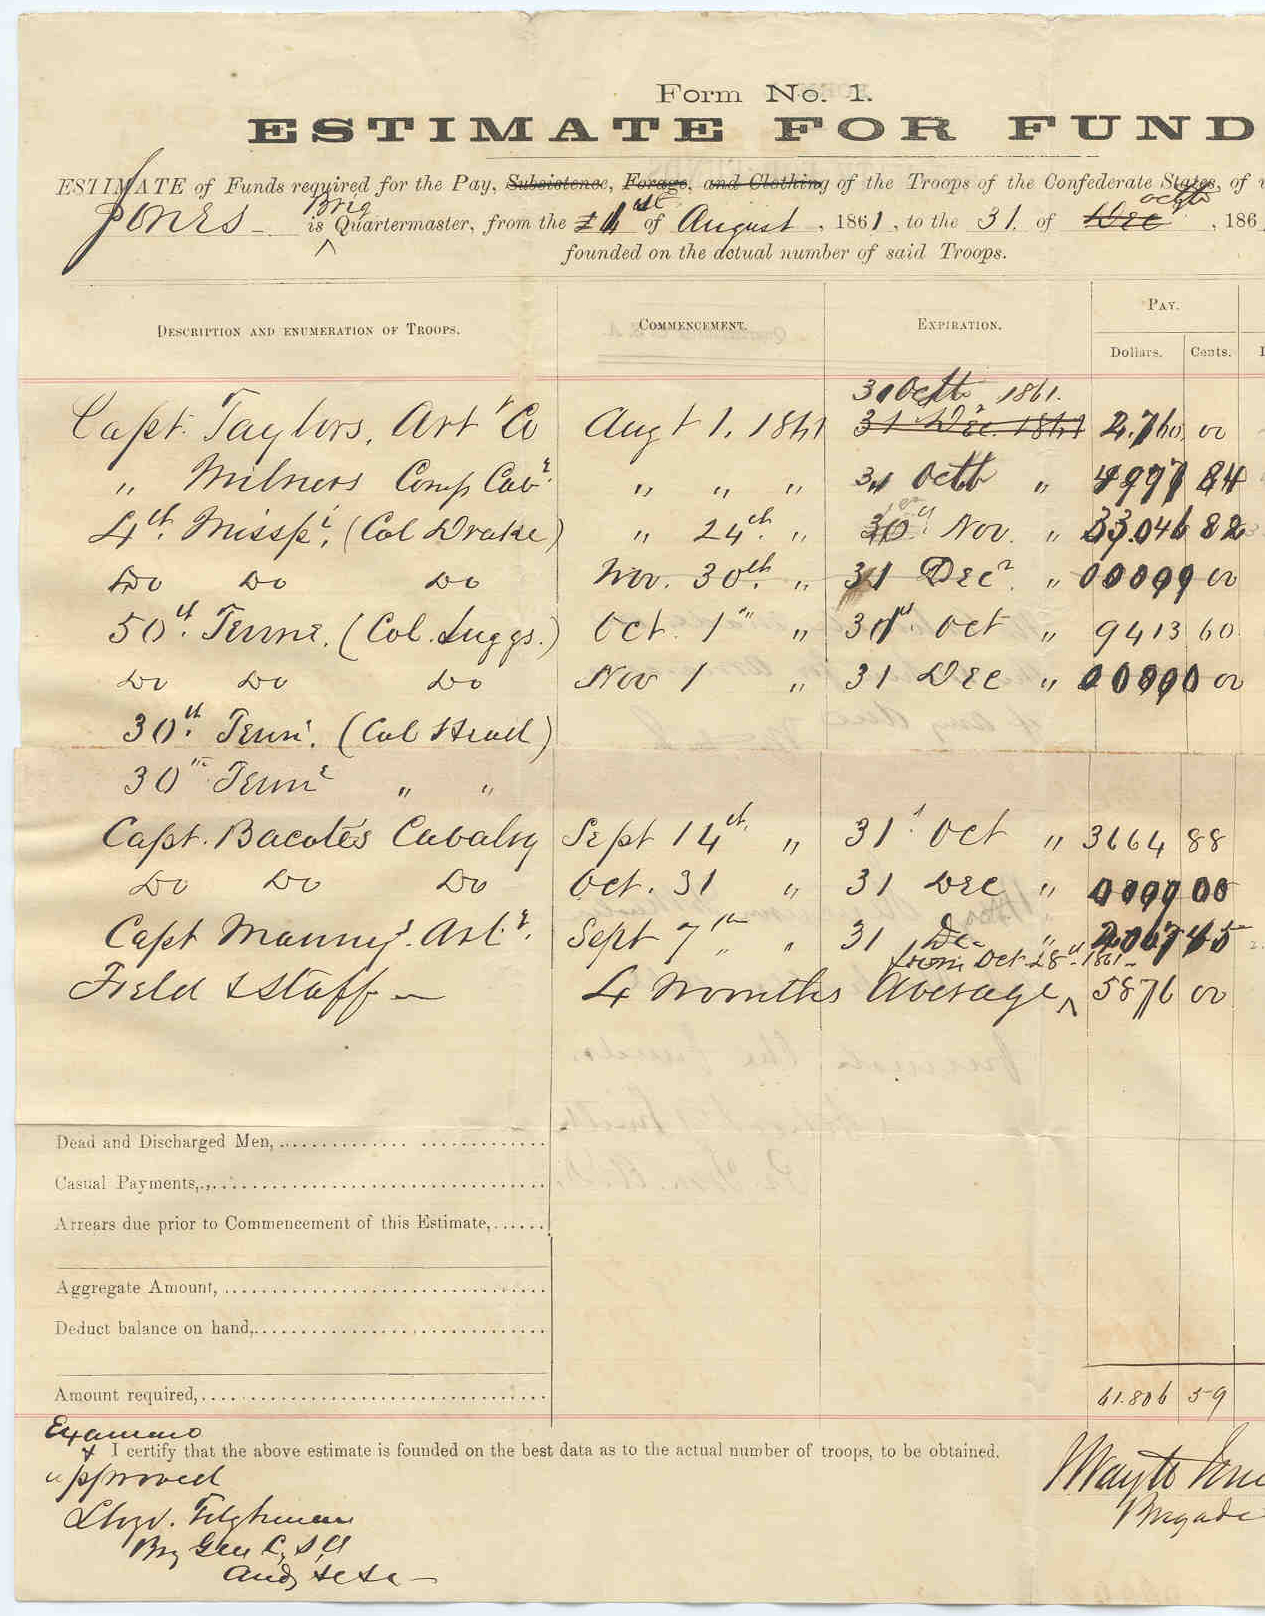 Form No. 1.
ESTIMATE FOR FUND
ESTIMATE of Funds required for the Pay, Subsistence, Forage, and Clothing of the Troops of the Confederate States, of
Jones is Brig Quartermaster, from the 1st of August, 1861, to the 31. of Dec octb, 186
founded on the actual number of said Troops.
DESCRIPTION AND ENUMERATION OF TROOPS. COMMENCEMENT. EXPIRATION. PAY.
Dollars. Cents.
31 Octb 1861.
Capt. Taylors, Art Co Augt 1. 1861 31 Dec 1861 2.760 00
" Milners Comp Cavr. " " " 31 Octb " 4977 84
4th. Misspi, (Col Drake) " 24th. " 30 Nov. " 33.046 82
Do Do Do Nov. 30th. " 31 Decr. " 00
50th. Tenne. (Col. Suggs.) Oct. 1st " 31st. Oct " 9413 60
Do Do Do Nov 1 " 31 Dec " 00
30th. Tenn. (Col Head)
30th Tenne " "
Capt. Bacotes Cavalry Sept 14th. " 31st Oct " 3664 88
Do Do Do Oct. 31 " 31 Dec " 00
Capt Manny's. Art. Sept 7th " 31 De "
from Oct. 28th. 1861-
Field & Staff 4 Months Average 5876 00
Dead and Discharged Men,
Casual Payments,
Arrears due prior to Commencement of this Estimate,
Aggregate Amount,
Deduct balance on hand,
Amount required, 61.806 59
Examined
& I certify that the above estimate is founded on the best data as to the actual number of troops, to be obtained.
approved
Lloyd. Tilghman
Brig Gen C, S, A
Brigade